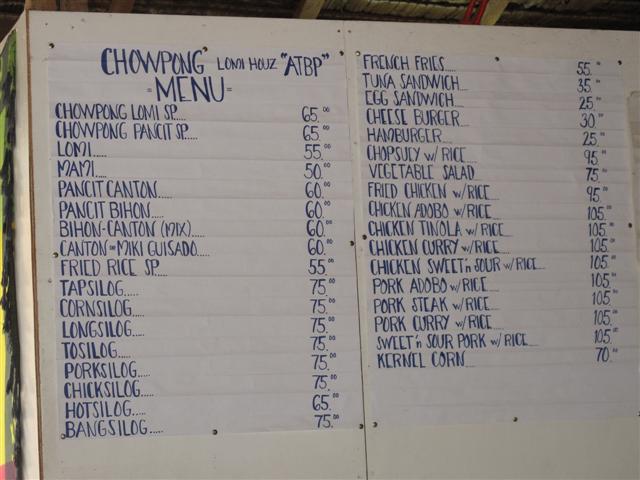 CHOWPONG LOMI HOUZ "ATBP"
=MENU=
CHOWPONG LOMI SP..... 65.00
CHOWPONG PANCIT SP..... 65.00
LOMI..... 55.00
MAMI..... 50.00
PANCIT CANTON..... 60.00
PANCIT BIHON..... 60.00
BIHON-CANTON (MIX)..... 60.00
CANTON=MIKI GUISADO..... 60.00
FRIED RICE SP..... 55.00
TAPSILOG..... 75.00
CORNSILOG..... 75.00
LONGSILOG..... 75.00
TOSILOG..... 75.00
PORKSILOG..... 75.00
CHICKSILOG..... 75.00
HOTSILOG..... 65.00
BANGSILOG..... 75.00
FRENCH FRIES..... 55.00
TUNA SANDWICH..... 35.00
EGG SANDWICH..... 25.00
CHEESE BURGER..... 30.00
HAMBURGER..... 25.00
CHOPSUEY w/ RICE.... 95.00
VEGETABLE SALAD..... 75.00
FRIED CHICKEN w/RICE.... 95.00
CHICKEN ADOBO w/RICE.... 105.00
CHICKEN TINOLA w/RICE.... 105.00
CHICKEN CURRY w/RICE.... 105.00
CHICKEN SWEET'n SOUR w/RICE.... 105.00
PORK ADOBO w/RICE.... 105.00
PORK STEAK w/RICE.... 105.00
PORK CURRY w/RICE.... 105.00
SWEET'n SOUR PORK w/RICE.... 105.00
KERNEL CORN..... 70.00